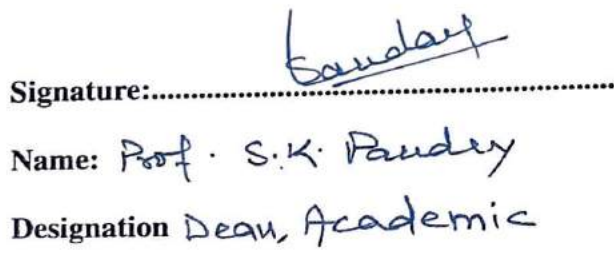 Signature:..........................................................
Name: Prof. S.K. Pandey
Designation Dean, Academic